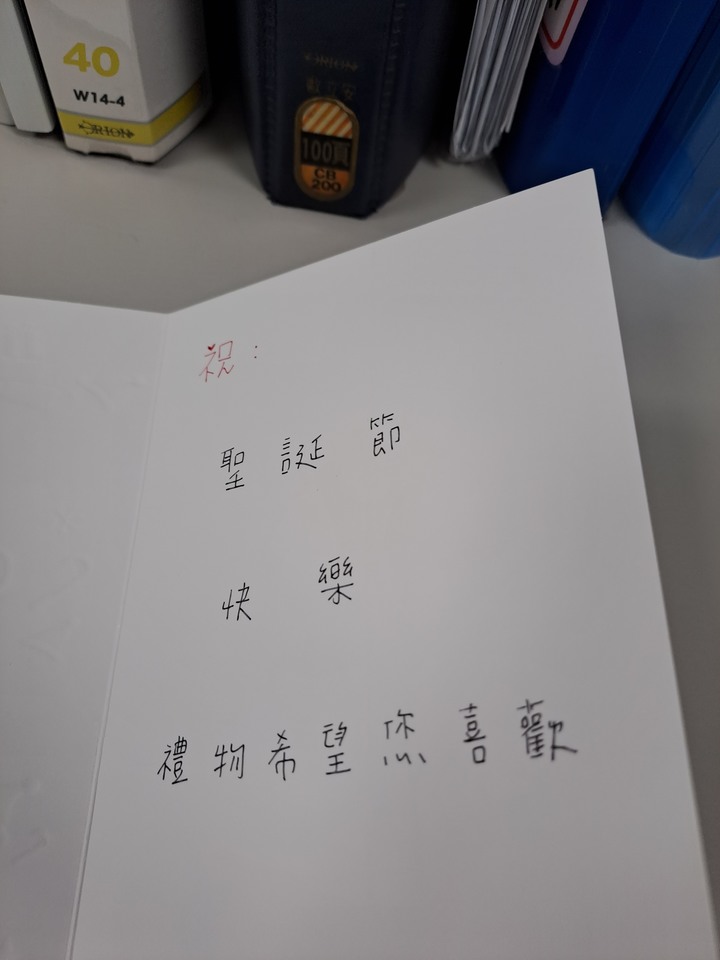 40
W14-4
100頁
CB
200
祝：
聖誕節
快樂
禮物希望您喜歡